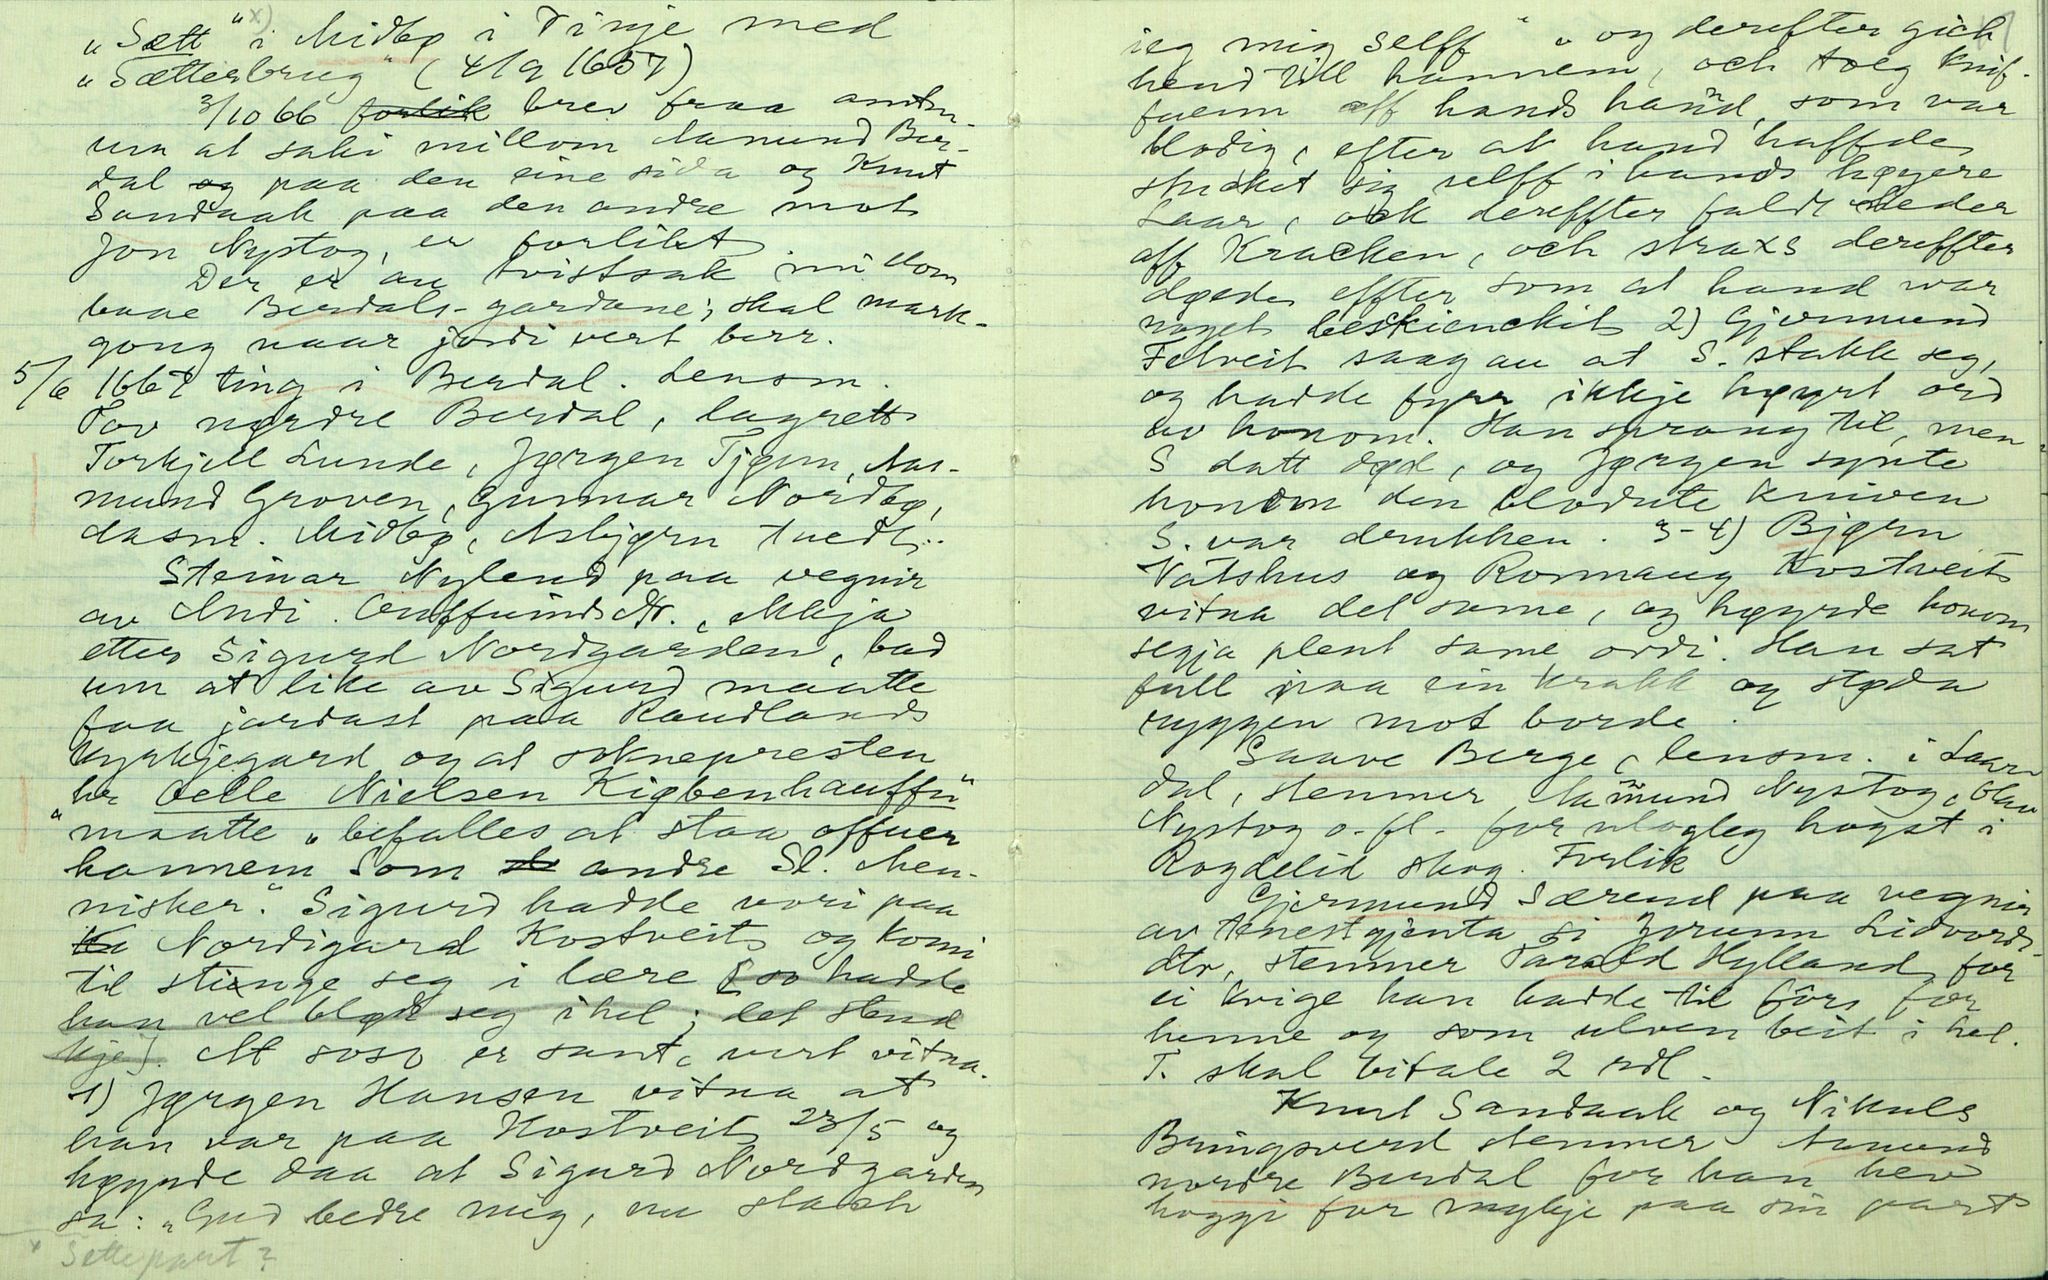 „Sætt“ x) i Midbø i Vinje med
„Sætterbrug“ (4/9 1657)
3/10 66 forlik brev fraa andn-
um at saki millom Aamund Ber-
dal og paa den eine sida og Knut
Sandaak paa den andre mot
Jon Nystog, er forlikt
Der er au tvistsak millom
baae Berdals-gardane; skal mark-
gong naar jordi vert berr.
5/6 1667 ting i Berdal. Lensm.
Tov nørdre Berdal, lagrett
Torkjell Lunde, Jørgen Tjønn, Aas-
mund Groven, Gunnar Nordbø,
Aasm. Midbø, Asbjørn Tvedt..
Steinar Nylend paa vegnir
av Andi. Ouffuindsdtr., ekkja
etter Sigurd Nordgarden, bad
um at like av Sigurd maatte
faa jordast paa Raudlands
kyrkjegard og at soknepresten
hr Oelle Nielsen Kiøbenhauffn“
“maatte „befalles at staa offuer
hannem som andre Sl. Men-
nisker“. Sigurd hadde vori paa
Nordigard Kostveit og komi
til stinge seg i lære (so hadde
han vel blødt seg ihel; det stend
kje). At soso er sant, vert vitna.
1) Jørgen Hansen vitna at
han var paa Kostveit 23/5 og
høyrde daa at Sigurd Nordgarden
sa: „Gud bedre mig, nu stach
x Settepart?
ieg mig selff“ „og derefter gich
hend till hannem, och toeg knif-
fuenn aff hands hannd, som var
blodig, efter at hand haffde
stucket sig selff i hands høyere
Laar, och dereffter faldt neder
aff Kracken, och straxs dereffter
døede, effter som at hand war
noget beskienckit 2) Gjermund
Felveit saag au at S. stakk seg,
og hadde fyrr ikkje høyrt ord
av honom. Han sprang til, men
S datt død, og Jørgen synte
honom den blodute kniven
S. var drukken. 3-4) Bjørn
Våtshus og Rormaug Kostveit
vitna det same, og høyrde honom
segja plent same ordi. Han sat
full paa ein krakk og stødde
ryggen mot borde.
Saave Berge, lensm. i Laar-
dal, stemner Aamund Nystog, Olav
Nystog o. fl. for ulogleg hogst i
Rogdelid skog. Forlik
Gjermund Særend paa vegnir
av tenestgjenta si Jorunn Lidvords-
dtr, stemner Tarald Hylland for
ei kvige han hadde til fôrs for
henne og som ulven beit i hel.
T. skal bitale 2 rdl.
Knut Sandaak og Nikuls
Bringsverd stemner Aamund
nordre Berdal for han hev
hoggi for mykje paa sin part